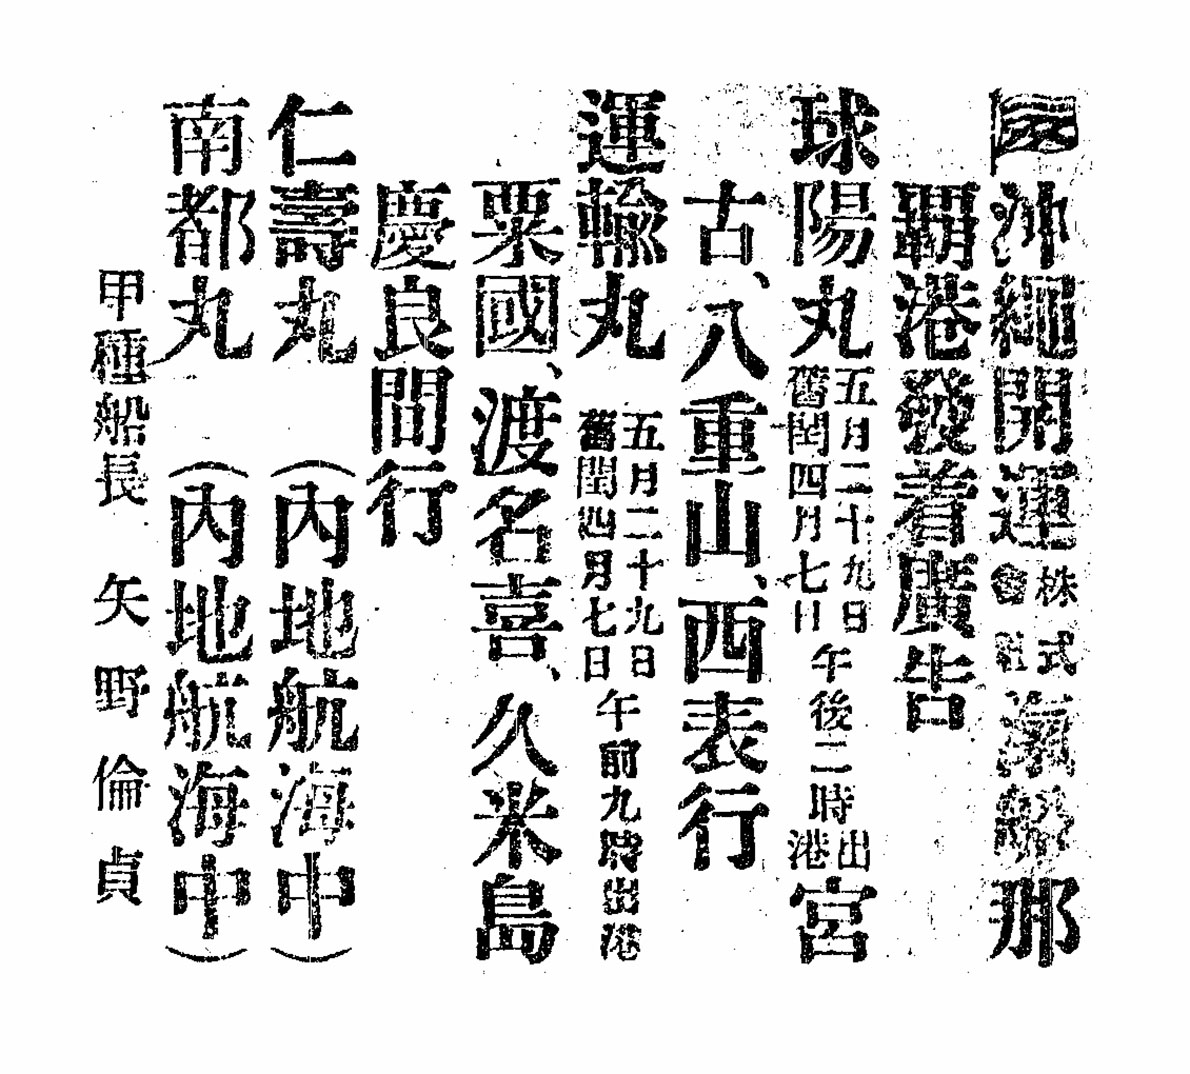 沖繩開運株式會社滊船那
覇港發着廣告
球陽丸五月二十九日舊閏四月七日午後二時出港宮
古、八重山、西表行
運輸丸 五月二十九日舊閏四月七日午前九時出港
粟國、渡名喜、久米島
慶良間行
仁壽丸 (內地航海中)
南都丸 (內地航海中)
甲種船長 矢野倫貞